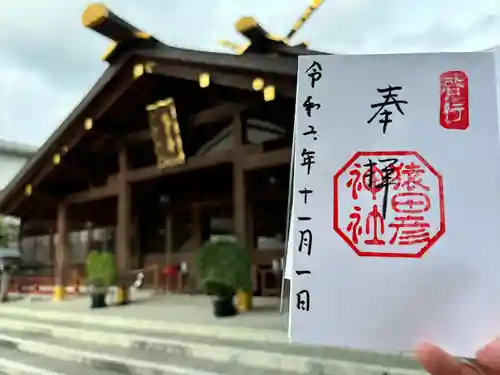 啓行
奉拝
猿田彦
神社
令和六年十一月一日